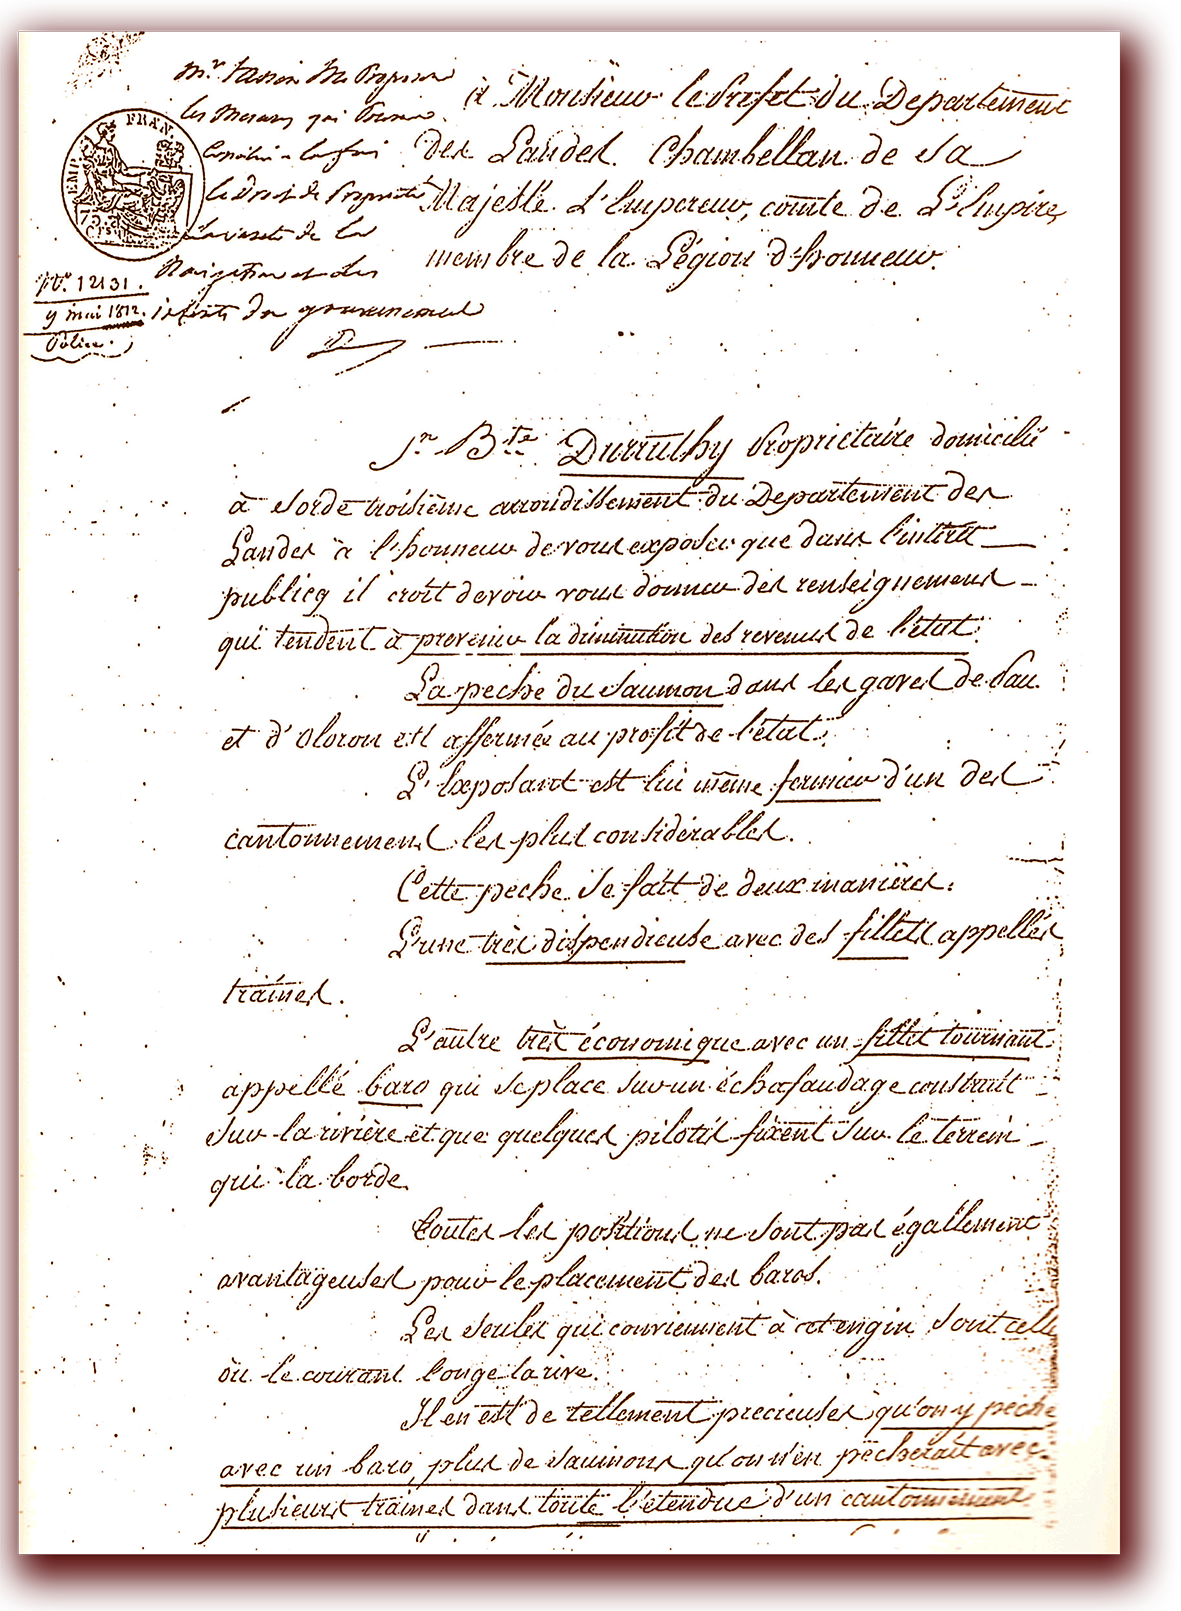 Mr
les Mesures qui
le Droit de Propriété
de la
Navigation et des
intérêts du gouvernement
EMP. FRAN.
75
No. 12131.
9 mai 1812.
Police.
à Monsieur le Préfet du Departement
des Landes. Chambellan de Sa
Majesté L'Empereur, comte de L'Empire,
membre de la Légion d'honneur.
Jn Bte Durruthy Propriétaire domicilié
à Sorde troisième arrondissement du Departement des
Landes à l'honneur de vous exposer que dans l'intérêt
publicq il croit devoir vous donner des renseignemens
qui tendent à prevenir la diminution des revenus de l'état.
La peche du Saumon dans les gaves de Pau
et d'Oloron est affermée au profit de l'état.
L'Exposant est lui même fermier d'un des
cantonnemens les plus considérables.
Cette peche se fait de deux manières.
L'une très dispendieuse avec des fillets appellés
traines.
L'autre très économique avec un fillet tournant
appellé baro qui se place sur un échafaudage construit
sur la rivière et que quelques pilotis fixent sur le terrein
qui la borde.
Toutes les positions ne sont pas égallement
avantageuses pour le placement des baros.
Les seules qui conviennent à cet engin sont celle
où le courant longe la rive.
Il en est de tellement precieuses qu'on y peche
avec un baro, plus de saumons qu'on n'en pécherait avec
plusieurs traines dans toute l'étendue d'un cantonnement